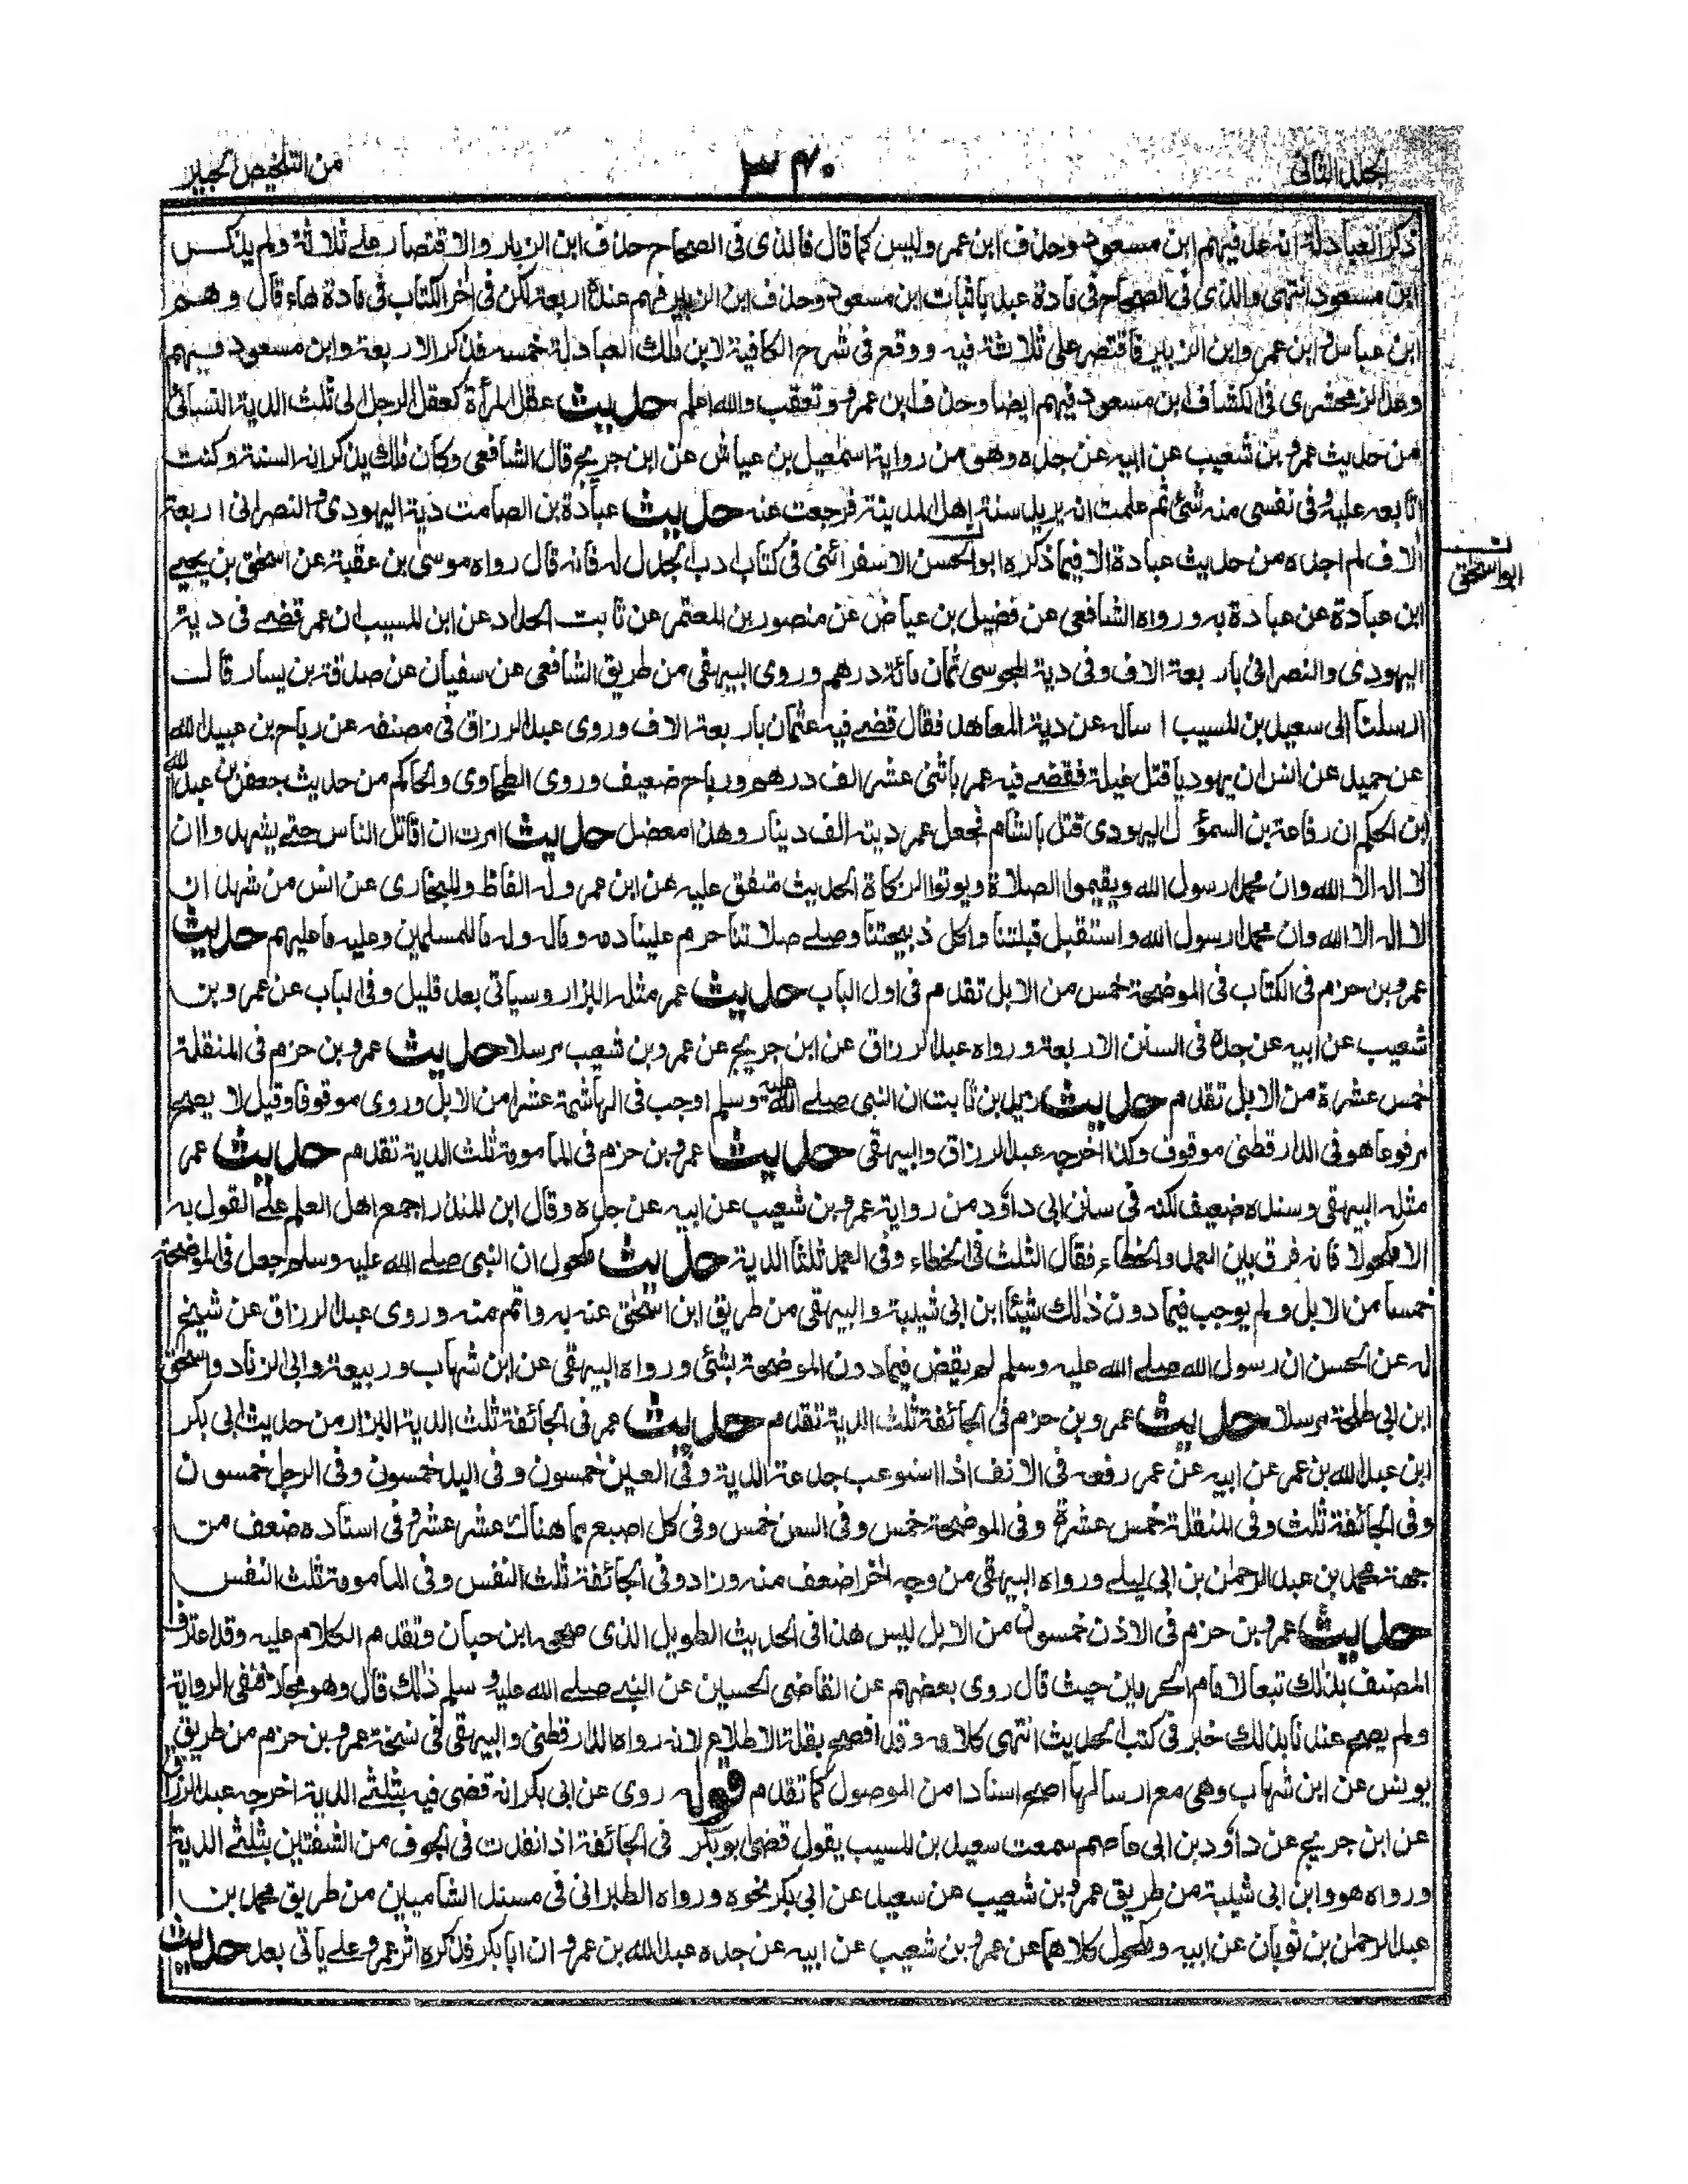 المجلد الثاني
٣٤٠
من التلخيص الحبير
ذكر العبادلة انه عد فيهم ابن مسعود وحذف ابن عمر وليس كما قال فالذى فى الصحاح حذف ابن الزبير والاقتصار على ثلاثة ولم يذكر
ابن مسعود انتهى والذى فى الصحاح فى مادة عبد باثبات ابن مسعود وحذف ابن الزبير فهم عنده اربعة لكن فى اخر الكتاب فى مادة هاء قال وهم
ابن عباس وابن عمر وابن الزبير فاقتصر على ثلاثة فيه ووقع فى شرح الكافية لابن مالك العبادلة خمسة فذكر الاربعة وابن مسعود فيهم
وعد الزمخشرى فى الكشاف ابن مسعود فيهم ايضا وحذف ابن عمرو وتعقب والله اعلم حديث عقل المرأة كعقل الرجل الى ثلث الدية النسائى
من حديث عمرو بن شعيب عن ابيه عن جده وهو من رواية اسمعيل بن عياش عن ابن جريج قال الشافعى وكان مالك يذكر انه السنة وكنت
اتابعه عليه وفى نفسى منه شئ ثم علمت انه يريد سنة اهل المدينة فرجعت عنه حديث عبادة بن الصامت دية اليهودى والنصرانى اربعة
الاف لم اجده من حديث عبادة الا فيما ذكره ابو الحسن الاسفرائنى فى كتاب ادب الجدل له فانه قال رواه موسى بن عقبة عن اسحق بن يحيى
ن
ابو اسحق
ابن عبادة عن عبادة به ورواه الشافعى عن فضيل بن عياض عن منصور بن المعتمر عن ثابت الحداد عن ابن المسيب ان عمر قضے فى دية
اليهودى والنصرانى باربعة الاف وفى دية المجوسى ثمان مائة درهم وروى البيهقى من طريق الشافعى عن سفيان عن صدقة بن يسار قال
ارسلنا الى سعيد بن المسيب اساله عن دية المعاهد فقال قضے فيه عثمان باربعة الاف وروى عبد الرزاق فى مصنفه عن رباح بن عبيد الله
عن حميد عن انس ان يهوديا قتل غيلة فقضے فيه عمر باثنى عشر الف درهم ورباح ضعيف وروى الطحاوى والحاكم من حديث جعفر بن عبد الله
ابن الحكم ان رفاعة بن السموؤل اليهودى قتل بالشام فجعل عمر ديته الف دينار وهذا معضل حديث امرت ان اقاتل الناس حتے يشهدوا ان
لا اله الا الله وان محمدا رسول الله ويقيموا الصلاة ويوتوا الزكاة الحديث متفق عليه عن ابن عمر وله الفاظ وللبخارى عن انس من شهد ان
لا اله الا الله وان محمدا رسول الله واستقبل قبلتنا واكل ذبيحتنا وصلے صلاتنا حرم علينا دمه وماله وله ما للمسلمين وعليه ما عليهم حديث
عمرو بن حزم فى الكتاب فى الموضحة خمس من الابل تقدم فى اول الباب حديث عمر مثله البزار وسياتى بعد قليل وفى الباب عن عمرو بن
شعيب عن ابيه عن جده فى السنن الاربعة ورواه عبد الرزاق عن ابن جريج عن عمرو بن شعيب مرسلا حديث عمرو بن حزم فى المنقلة
خمس عشرة من الابل تقدم حديث زيد بن ثابت ان النبى صلے الله عليه وسلم اوجب فى الهاشمة عشرا من الابل وروى موقوفا وقيل لا يصح
مرفوعا هو فى الدارقطنى موقوف وكذا اخرجه عبد الرزاق والبيهقى حديث عمرو بن حزم فى المامومة ثلث الدية تقدم حديث عمر
مثله البيهقى وسنده ضعيف لكنه فى سنن ابى داؤد من رواية عمرو بن شعيب عن ابيه عن جده وقال ابن المنذر اجمع اهل العلم على القول به
الا مكحولا فانه فرق بين العمد والخطاء فقال الثلث فى الخطاء وفى العمد ثلثا الدية حديث مكحول ان النبى صلے الله عليه وسلم جعل فى الموضحة
خمسا من الابل ولم يوجب فيما دون ذلك شيئا ابن ابى شيبة والبيهقى من طريق ابن اسحق عنه به واتم منه وروى عبد الرزاق عن شيخ
له عن الحسن ان رسول الله صلے الله عليه وسلم لم يقض فيما دون الموضحة بشئ ورواه البيهقى عن ابن شهاب وربيعة وابى الزناد واسحق
ابن ابى طلحة مرسلا حديث عمرو بن حزم فى الجائفة ثلث الدية تقدم حديث عمر فى الجائفة ثلث الدية البزار من حديث ابى بكر
ابن عبد الله بن عمر عن ابيه عن عمر رفعه فى الانف اذا استوعب جدعه الدية وفى العين خمسون وفى اليد خمسون وفى الرجل خمسون
وفى الجائفة ثلث وفى المنقلة خمس عشرة وفى الموضحة خمس وفى السن خمس وفى كل اصبع مما هنالك عشر عشر وفى اسناده ضعف من
جهة محمد بن عبد الرحمن بن ابى ليلے ورواه البيهقى من وجه اخر اضعف منه وزاد وفى الجائفة ثلث النفس وفى المامومة ثلث النفس
حديث عمرو بن حزم فى الاذن خمسون من الابل ليس هذا فى الحديث الطويل الذى صححه ابن حبان وتقدم الكلام عليه وقد اعترف
المصنف بذلك تبعا لامام الحرمين حيث قال روى بعضهم عن القاضى الحسين عن النبے صلے الله عليه وسلم ذلك قال وهو مجازفة فى الرواية
ولم يصح عندنا بذلك خبر فى كتب الحديث انتهى كلامه وقد افصح بقلة الاطلاع لانه رواه الدارقطنى والبيهقى فى نسخة عمرو بن حزم من طريق
يونس عن ابن شهاب وهى مع ارسالها اصح اسنادا من الموصول كما تقدم قوله روى عن ابى بكر انه قضى فيه بثلثے الدية اخرجه عبد الرزاق
عن ابن جريج عن داؤد بن ابى عاصم سمعت سعيد بن المسيب يقول قضى ابو بكر فى الجائفة اذا نفذت فى الجوف من الشفتين بثلثے الدية
ورواه هو وابن ابى شيبة من طريق عمرو بن شعيب عن سعيد عن ابى بكر نحوه ورواه الطبرانى فى مسند الشاميين من طريق محمد بن
عبد الرحمن بن ثوبان عن ابيه ومكحول كلاهما عن عمرو بن شعيب عن ابيه عن جده عبد الله بن عمرو ان ابا بكر فذكره اثر عمر وعلے ياتى بعد حديث